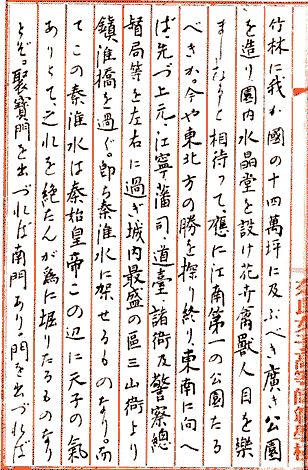 竹林に我が國の十四萬坪に及ぶべき廣き公園
を造り園内水晶堂を設け花卉禽獸人目を樂
ましむるものと相待つて應に江南第一の公園たる
べきか。今や東北方の勝を探り終り、東南に向へ
ば、先づ上元、江寧、藩司、道臺、諸衙及警察總
督局等を左右に過ぎ城内最盛の區三山衙より
鎮淮橋を過ぐ。即ち秦淮水に架せるものなり。而
てこの秦淮水は秦始皇帝この辺に天子の氣
ありとて、之れを絶たんが爲に堀りたるものなり
とぞ。聚寶門を出づれば南門あり。門を出づれば